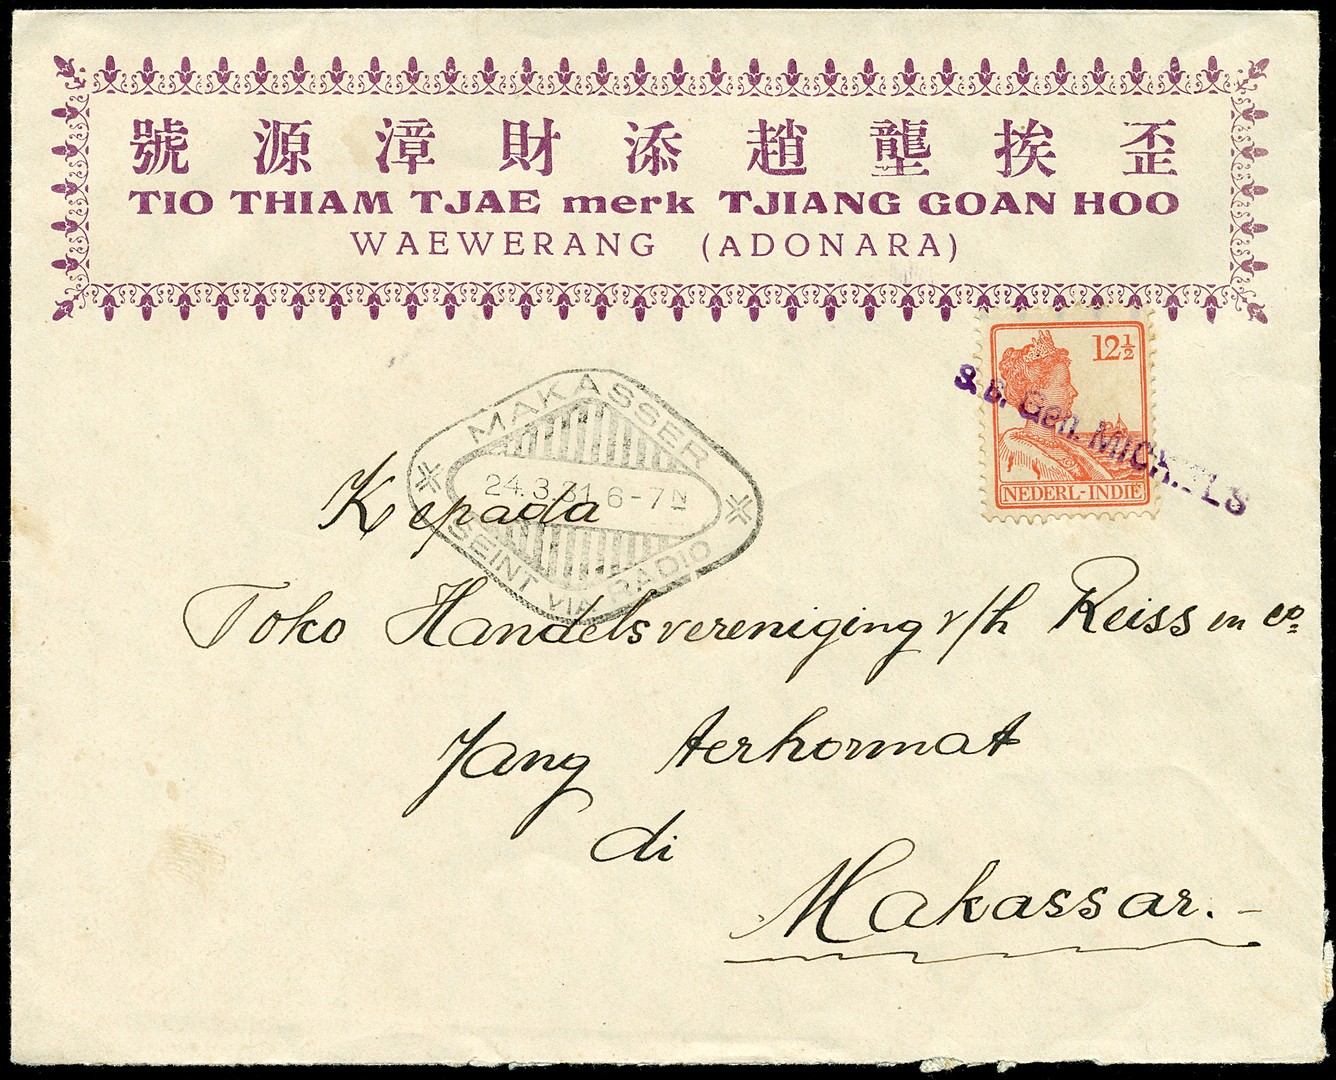 號源漳財添趙壟挨歪
TIO THIAM TJAE merk TJIANG GOAN HOO
WAEWERANG (ADONARA)
12½
NEDERL-INDIË
S.B. Gen. MICHIELS
MAKASSER
24.3.31 6-7N
SEINT VIA RADIO
Kepada
Toko Handelsvereniging v/h Reiss en Co.
Jang terhormat
di
Makassar.-